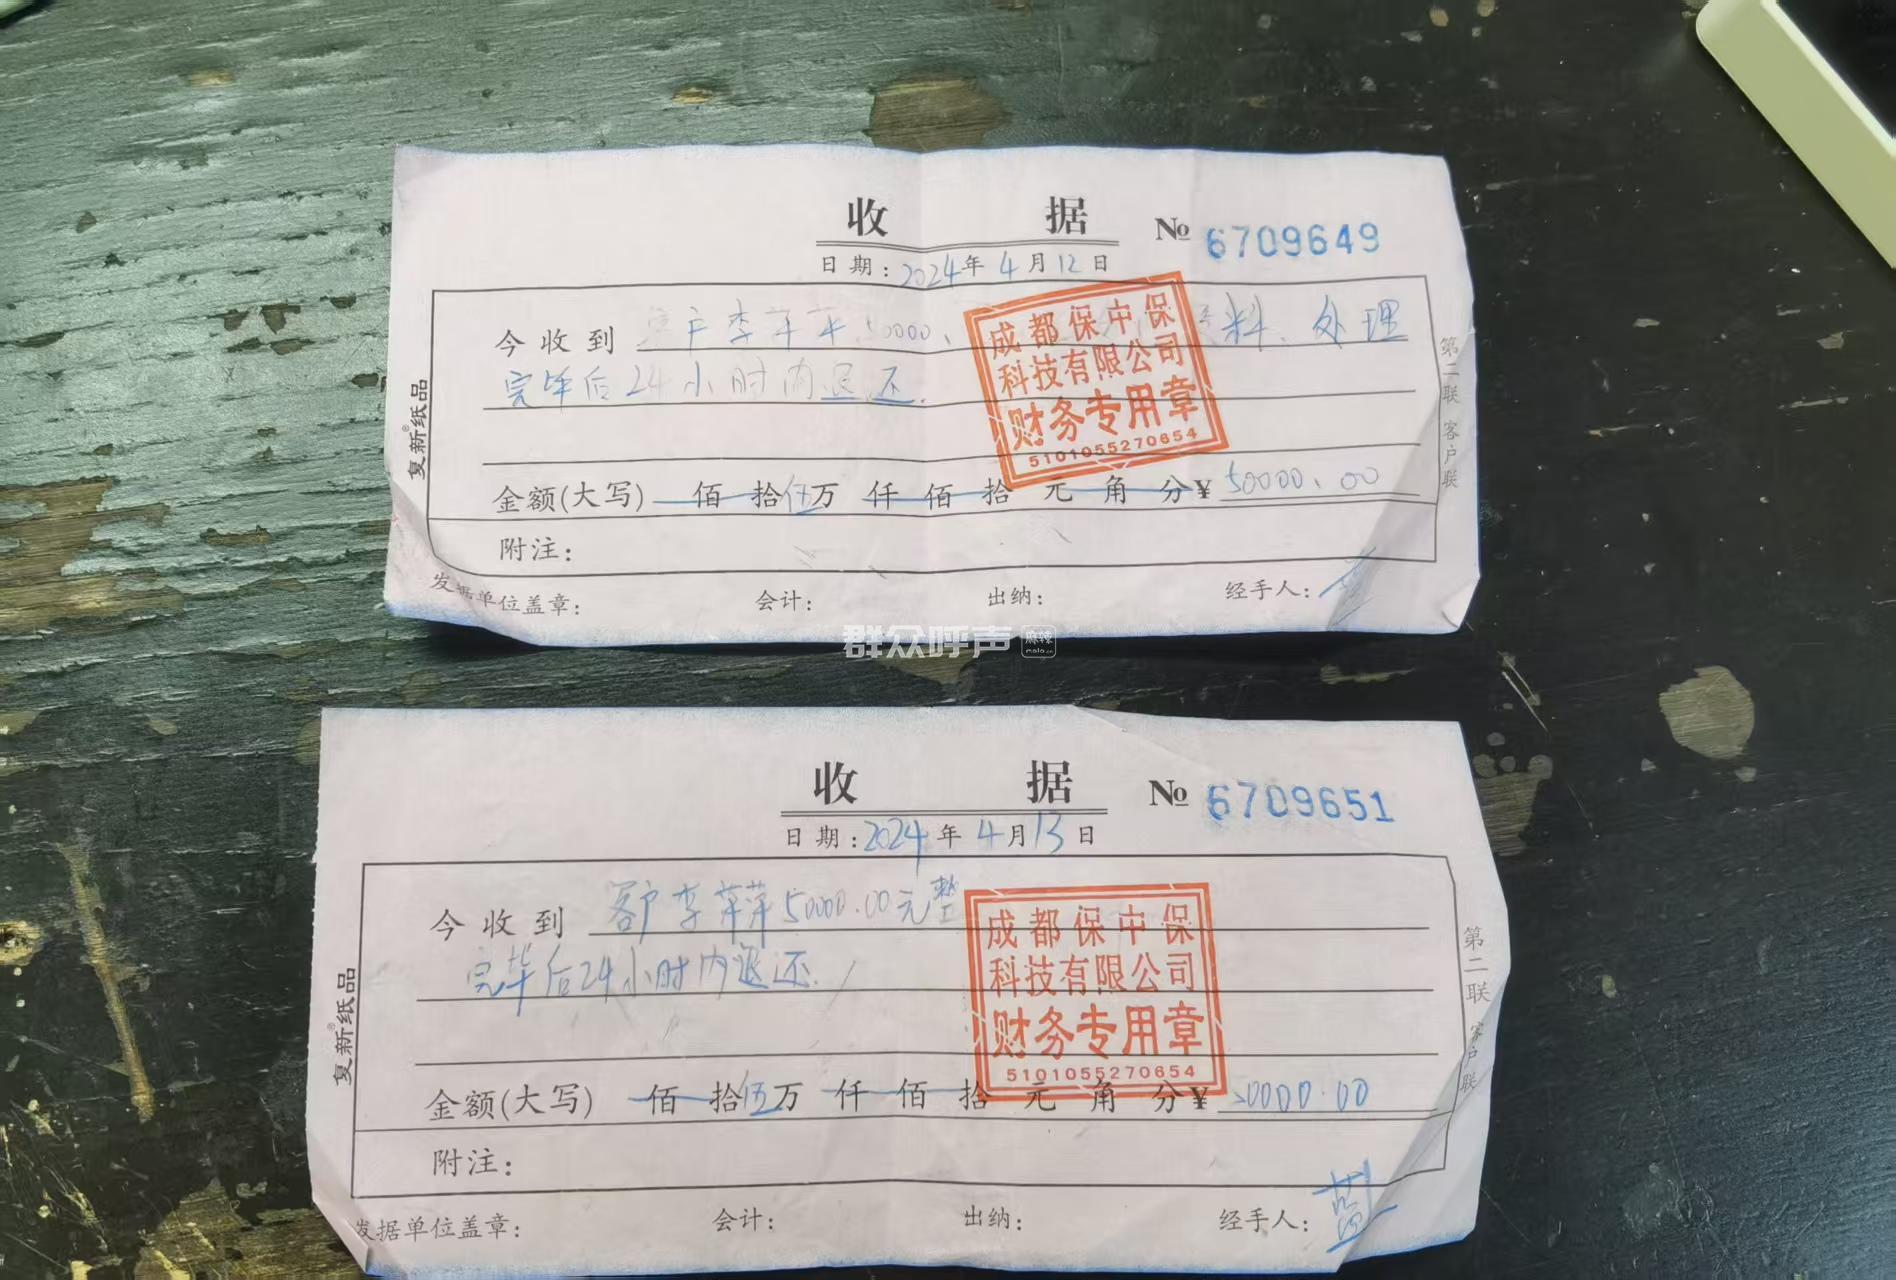 收 据 № 6709649
日期：2024年4月12日
今收到 户李萍萍50000、 料、处理
完毕后24小时内退还.
成都保中保
科技有限公司
财务专用章
5101055270654
金额(大写) 佰 拾伍万 仟 佰 拾 元 角 分¥ 50000.00
附注：
发据单位盖章： 会计： 出纳： 经手人：
复新®纸品
第二联 客户联
群众呼声 麻辣 mala.cn
收 据 № 6709651
日期：2024年4月13日
今收到 客户李萍萍50000.00元整
完毕后24小时内退还.
成都保中保
科技有限公司
财务专用章
5101055270654
金额(大写) 佰 拾伍万 仟 佰 拾 元 角 分¥ 50000.00
附注：
发据单位盖章： 会计： 出纳： 经手人：蓝
复新®纸品
第二联 客户联